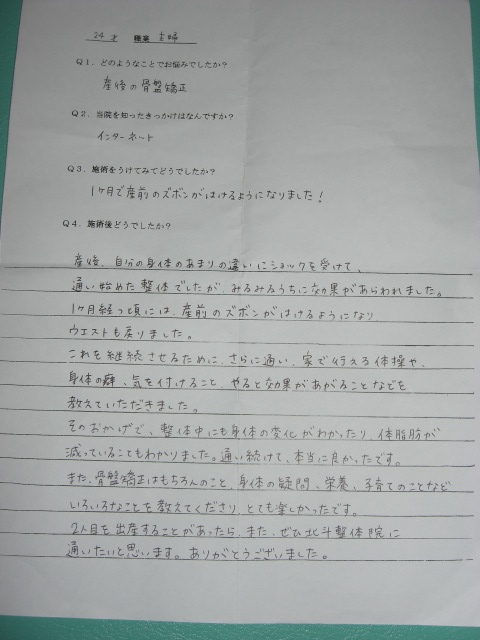 24才 職業 主婦
Q1．どのようなことでお悩みでしたか？
産後の骨盤矯正
Q2．当院を知ったきっかけはなんですか？
インターネット
Q3．施術をうけてみてどうでしたか？
1ヶ月で産前のズボンがはけるようになりました！
Q4．施術後どうでしたか？
産後、自分の身体のあまりの違いにショックを受けて、
通い始めた整体でしたが、みるみるうちに効果があらわれました。
1ヶ月経つ頃には、産前のズボンがはけるようになり
ウエストも戻りました。
これを継続させるために、さらに通い、家で行える体操や、
身体の癖、気を付けること、やると効果があがることなどを
教えていただきました。
そのおかげで、整体中にも身体の変化がわかったり、体脂肪が
減っていることもわかりました。通い続けて、本当に良かったです。
また、骨盤矯正はもちろんのこと、身体の疑問、栄養、子育てのことなど
いろいろなことを教えてくださり、とても楽しかったです。
2人目を出産することがあったら、また、ぜひ北斗整体院に
通いたいと思います。ありがとうございました。